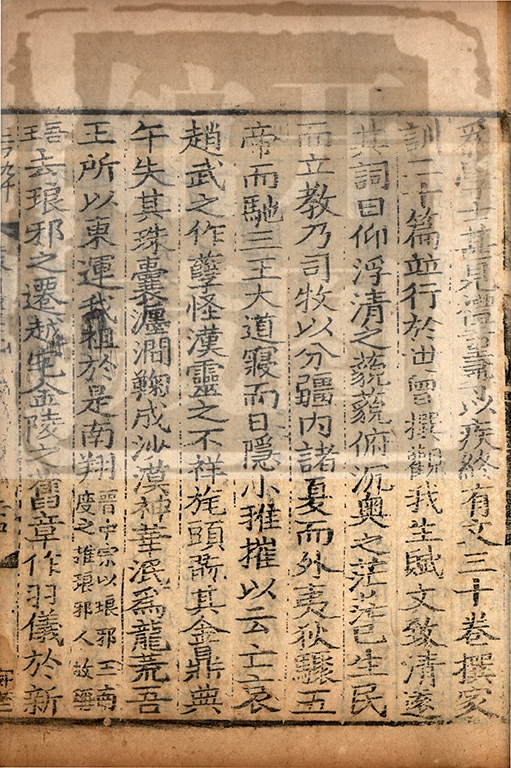 學士甚見禮重尋以疾終有文三十卷撰家
訓二十篇並行於世曾撰觀我生賦文致清遠
其詞曰仰浮清之藐藐俯沉奧之茫茫已生民
而立教乃司牧以分疆内諸夏而外夷狄驟五
帝而馳三王大道寢而日隱小雅摧以云亡哀
趙武之作孽怪漢靈之不祥旄頭翫其金鼎典
午失其珠囊瀍澗鞠成沙漠神華泯爲龍荒吾
王所以東運我祖於是南翔晉中宗以琅邪王南度之推琅邪人故稱
吾王去琅邪之遷越宅金陵之舊章作羽儀於新